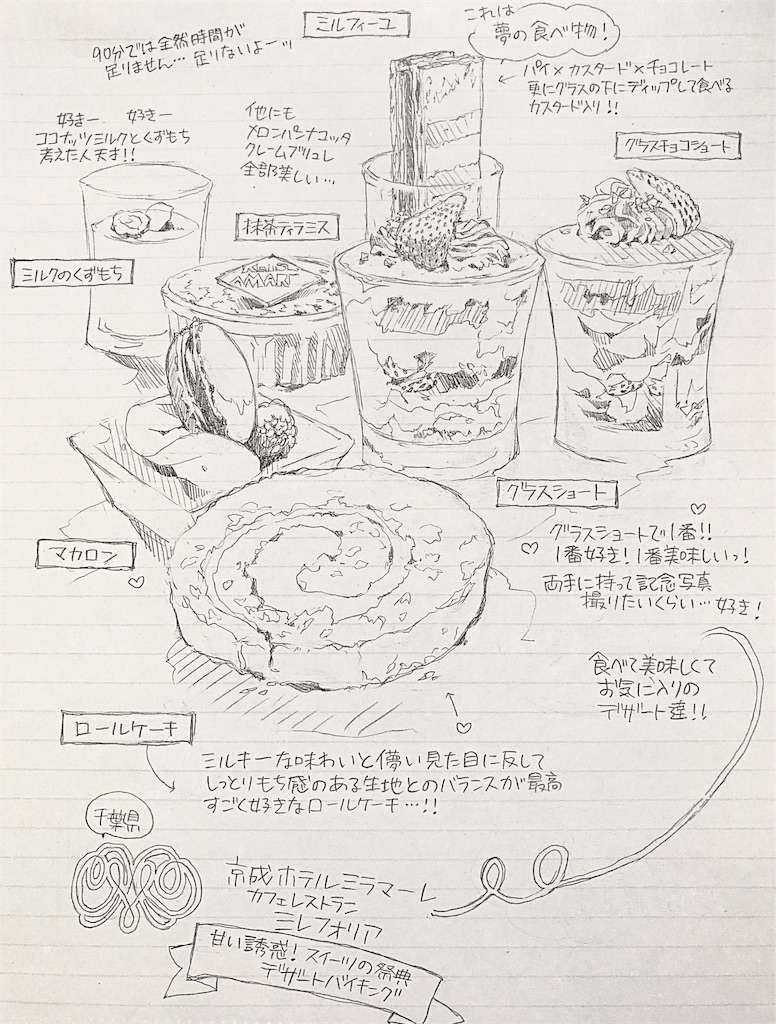 ミルフィーユ
これは
夢の食べ物!
90分では全然時間が
足りません… 足りないよーッ
パイ×カスタード×チョコレート
更にグラスの下にディップして食べる
カスタード入り!!
好きー 好きー
ココナッツミルクとくずもち
考えた人天才!!
他にも
メロンパンナコッタ
クレームブリュレ
全部美しい…
グラスチョコショート
抹茶ティラミス
ミルクのくずもち
グラスショート
マカロン
グラスショートで1番!!
1番好き!1番美味しいっ!
両手に持って記念写真
撮りたいくらい…好き!
食べて美味しくて
お気に入りの
デザート達!!
ロールケーキ
ミルキーな味わいと儚い見た目に反して
しっとりもち感のある生地とのバランスが最高
すごく好きなロールケーキ…!!
千葉県
京成ホテルミラマーレ
カフェレストラン
ミレフォリア
甘い誘惑!スイーツの祭典
デザートバイキング